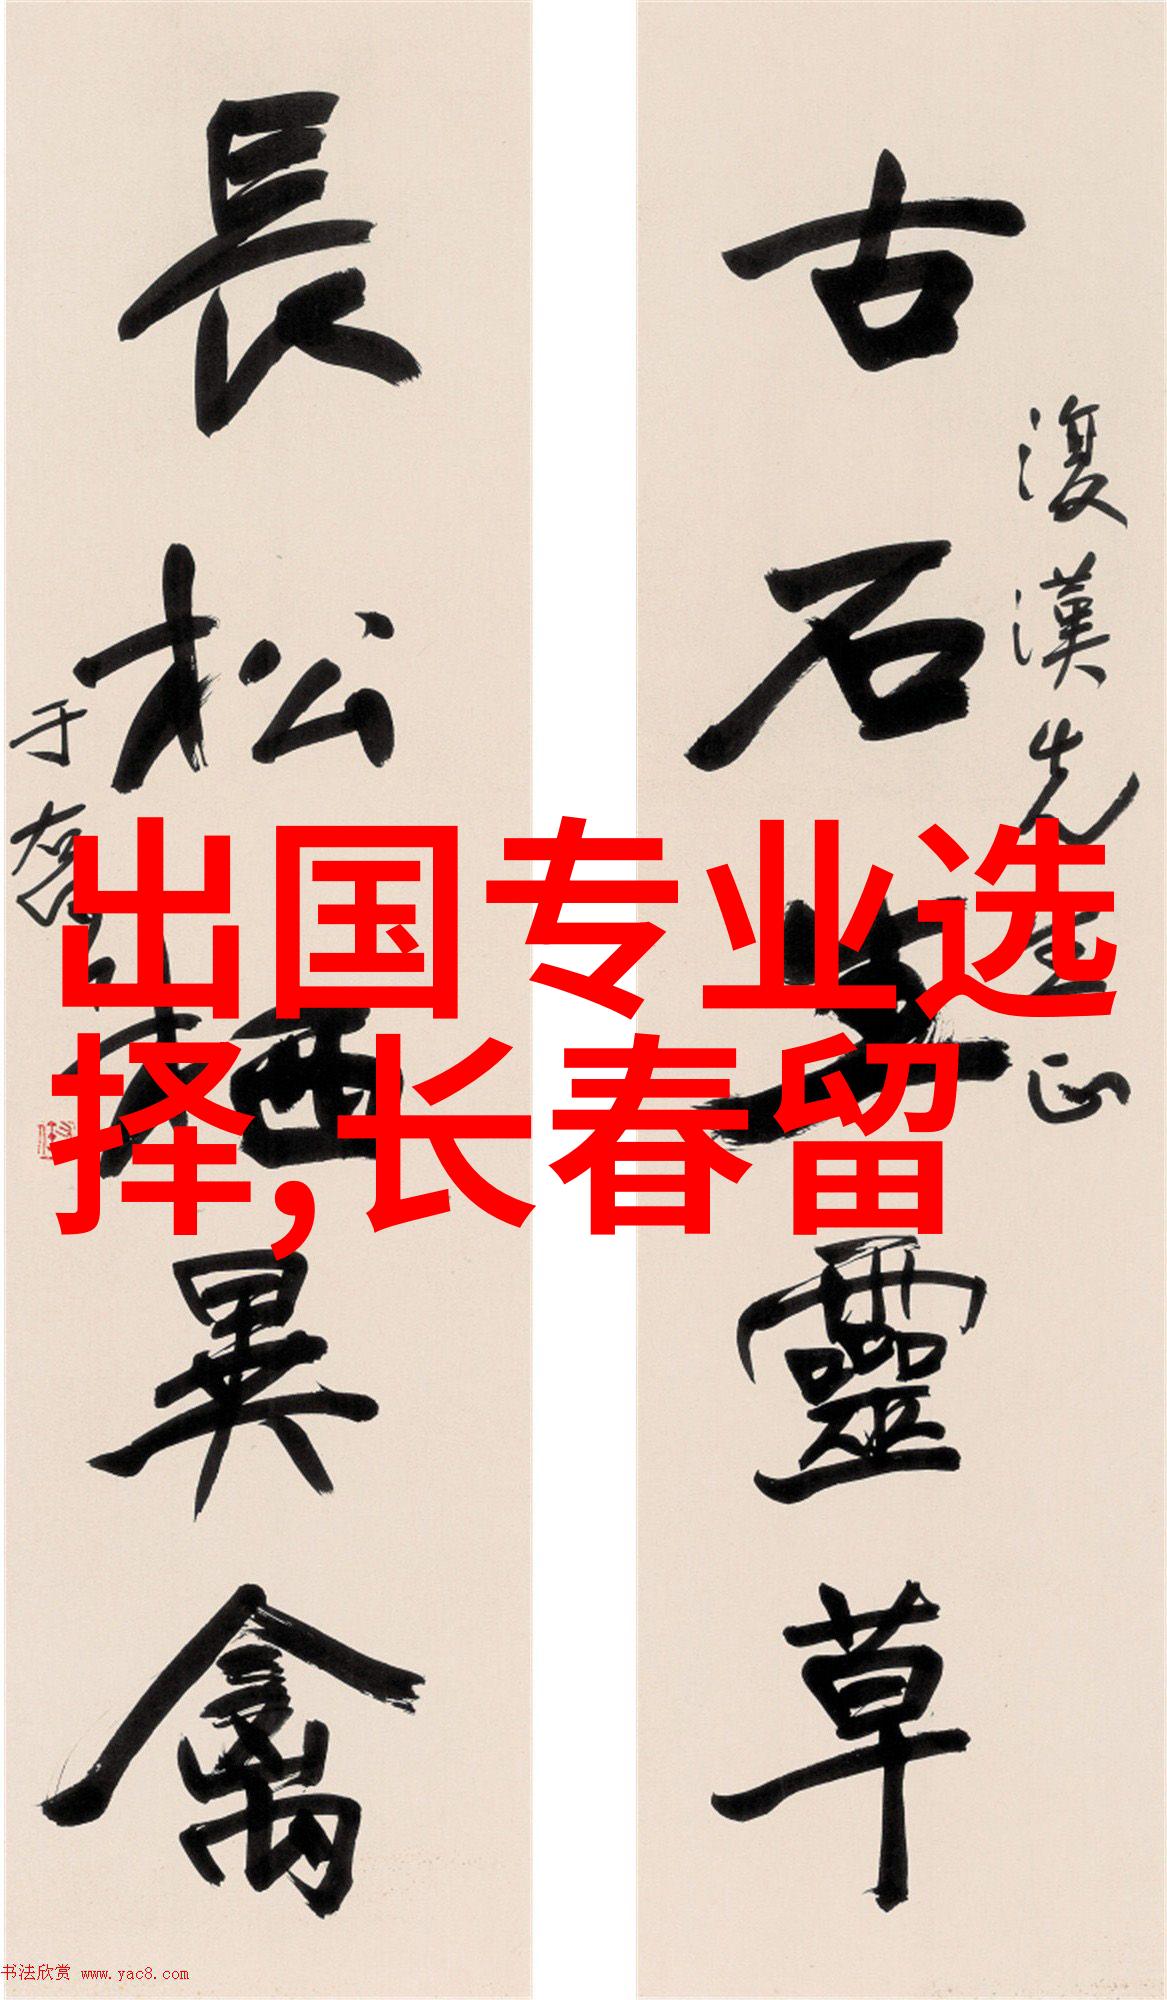 古石生靈草
復漢先生正
長松栖異禽
于右任
出国专业选
择,长春留
书法欣赏 www.yac8.com